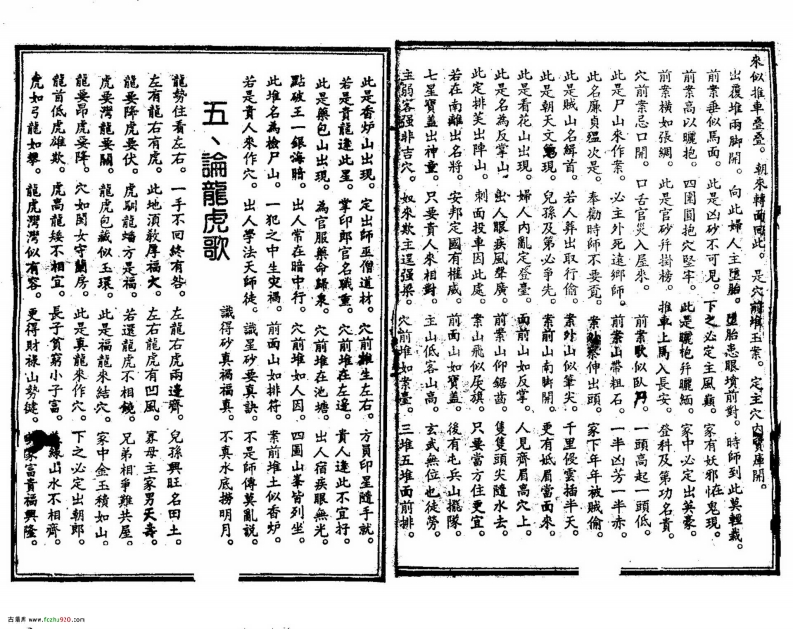 來似推車疊疊。朝來轉面回此。是穴前堆玉案。定主穴內寶庫開。
出覆堆兩脚開。向此婦人主墮胎。墮胎患眼墳前對。時師到此莫輕裁。
前案垂似馬面。此是凶砂不可見。下之必定主風癲。家有妖邪怪鬼現。
前案高以曬抱。四圍圓抱穴堅牢。此是曬袍幷曬緬。家中必定出英豪。
前案橫如張綱。此是官砂幷掛榜。推車上馬入長安。登科及第功名貴。
穴前案忌口開。口舌官災入屋來。前案歌似臥尸。一頭高起一頭低。
此是尸山來作案。必主外死遠鄉師。前案山帶粗石。一半凶芳一半赤。
此名廉貞猛次是。奉勸時師不要覓。案伸出頭。家下年年被賊偷。
此是賊山名觧首。若人葬出取行偷。案外山似筆尖。千里侵雲插半天。
此是朝天文筆現。兒孫及第必爭先。案前山南脚開。更有娬眉當面來。
此是看花山出現。婦人內亂定登臺。面前山如反掌。人見齊眉高穴上。
此是名為反掌山。出人眼疾風聲廣。前案山仰鋸齒。隻隻頭尖隨水去。
此定排芙出陣山。刺面投車因此處。案山飛似灰旗。只要當方住更宜。
若在南離出名將。安邦定國有權威。前面山如寶蓋。後有屯兵山擺隊。
七星寶蓋出神童。只要貴人來相對。主山低客山高。玄武無位也徒勞。
主弱客强非吉穴。奴來欺主逞强梁。穴前堆如案臺。三堆五堆面前排。
此是香炉山出現。定出師巫僧道材。穴前雖生左右。方員印星隨手就。
若是貴龍逢此星。掌印郎官名職重。穴前堆在左邊。貴人逢此不宜扞。
此是藥包山出現。為官服藥命歸泉。穴前堆在池塘。出人宿疾眼無光。
點破王一銀海暗。出人常在暗中行。穴前堆如人因。四圍山峯皆列坐。
此堆名為檢尸山。一犯之中生灾禍。前面山如排符。案前堆土似香炉。
若是貴人來作穴。出人學法天師徒。識星砂要真訣。不是師傳莫亂說。
識得砂真禍福真。不真水底撈明月。
五、論龍虎歌
龍勢住看左右。一手不回終有咎。左龍右虎兩邊齊。兒孫興旺名田土。
左有龍右有虎。此地湏敎厚福大。左右龍虎有凹風。寡母主家男夭壽。
龍要降虎要伏。虎馴龍蟠方是福。若還龍虎不相饒。兄弟相爭難共屋。
虎要灣龍要關。龍虎包藏似玉環。此是福龍來結穴。家中金玉積如山。
龍要昂虎要降。穴如閨女守蘭房。此是真龍來作穴。下之必定出朝郎。
龍首低虎雄欺。虎高龍矮不相宜。長子貧窮小子富。綠山水不相齊。
虎如弓龍如拳。龍虎灣灣似有容。更得財祿山勢健。家富貴福興隆。
古籍库 www.fczhu920.com